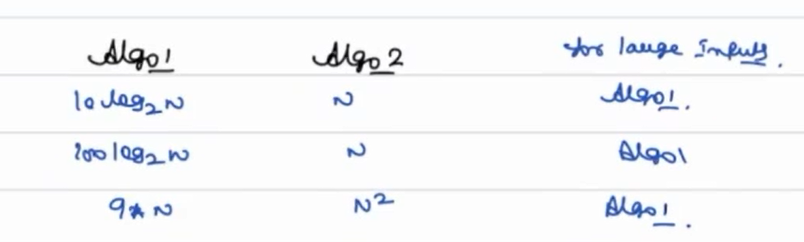 Algo1 Algo2 for large Inputs.
10 log2 N N Algo1.
100 log2 N N Algo1
9 * N N² Algo1.